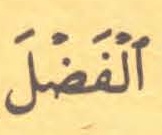 ٱلْفَضْلَ